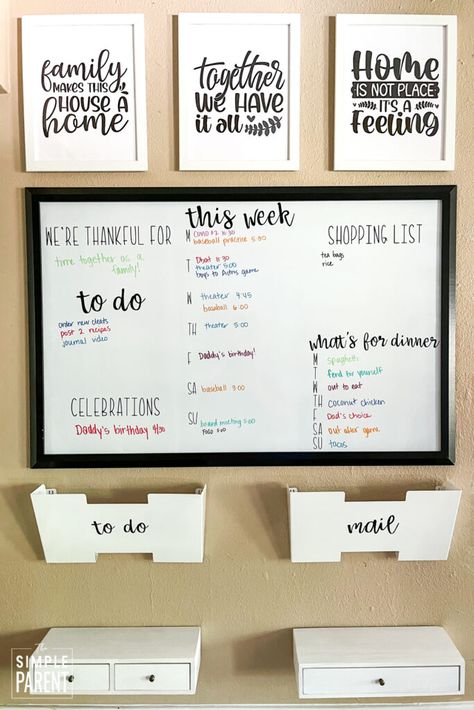 family
MAKES THIS
HOUSE A
home
together
WE HAVE
it all
HOME
IS NOT PLACE
IT'S A
FEELING
WE'RE THANKFUL FOR
time together as a
family!
to do
order new cleats
post 2 recipes
journal video
CELEBRATIONS
Daddy's birthday 4/30
this week
M Covid #2 11:30
baseball practice 5:30
T 11:30
theater 5:00
boys to game
W theater 4:45
baseball 6:00
TH theater 5:00
F Daddy's birthday!
SA baseball 3:00
SU board meeting 5:00
5:00
SHOPPING LIST
tea bags
rice
what's for dinner
M spaghetti
T fend for yourself
W out to eat
TH coconut chicken
F Dad's choice
SA out after game
SU tacos
to do
mail
THE
SIMPLE
PARENT